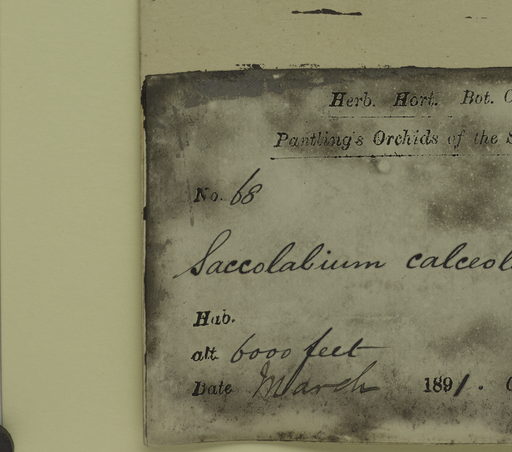 Herb. Hort. Bot. C
Pantling's Orchids of the S
No. 68
Saccolabium calceol
Hab.
alt. 6000 feet
Date March 1891.